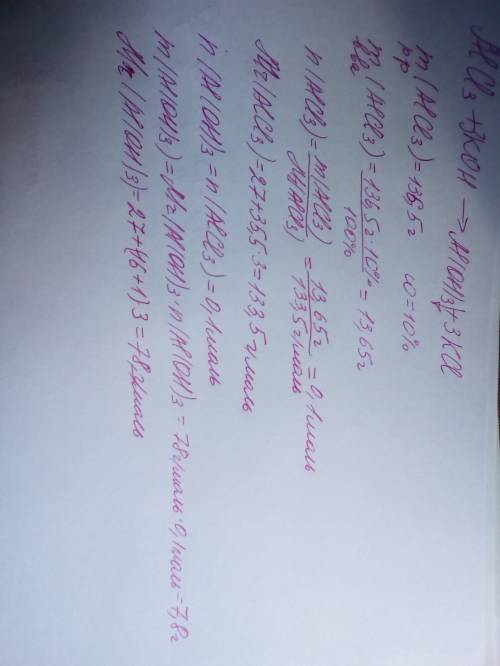 AlCl₃ + 3KOH → Al(OH)₃↓ + 3KCl
m (AlCl₃) = 136,5г ω = 10%
р-р
m (AlCl₃) = 136,5г · 10% / 100% = 13,65г
в-ва
n (AlCl₃) = m(AlCl₃) / M(AlCl₃) = 13,65г / 133,5г/моль = 0,1моль
Mr (AlCl₃) = 27 + 35,5 · 3 = 133,5г/моль
n (Al(OH)₃ = n (AlCl₃) = 0,1моль
m (Al(OH)₃) = Mr (Al(OH)₃ · n (Al(OH)₃ = 78г/моль · 0,1моль = 7,8г
Mr (Al(OH)₃) = 27 + (16 + 1) 3 = 78г/моль